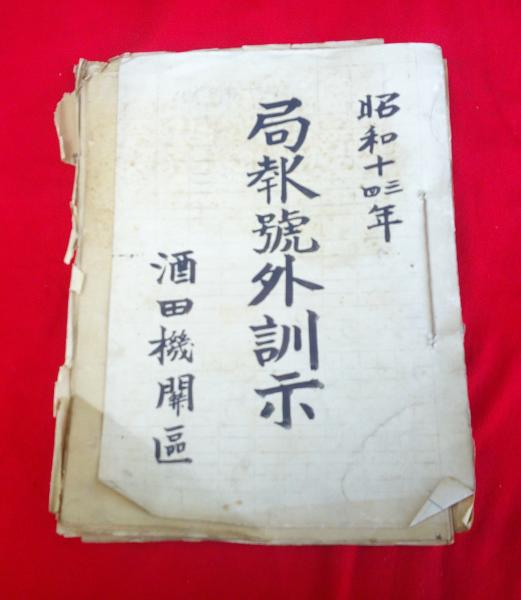 昭和十三四年
局報號外訓示
酒田機関區